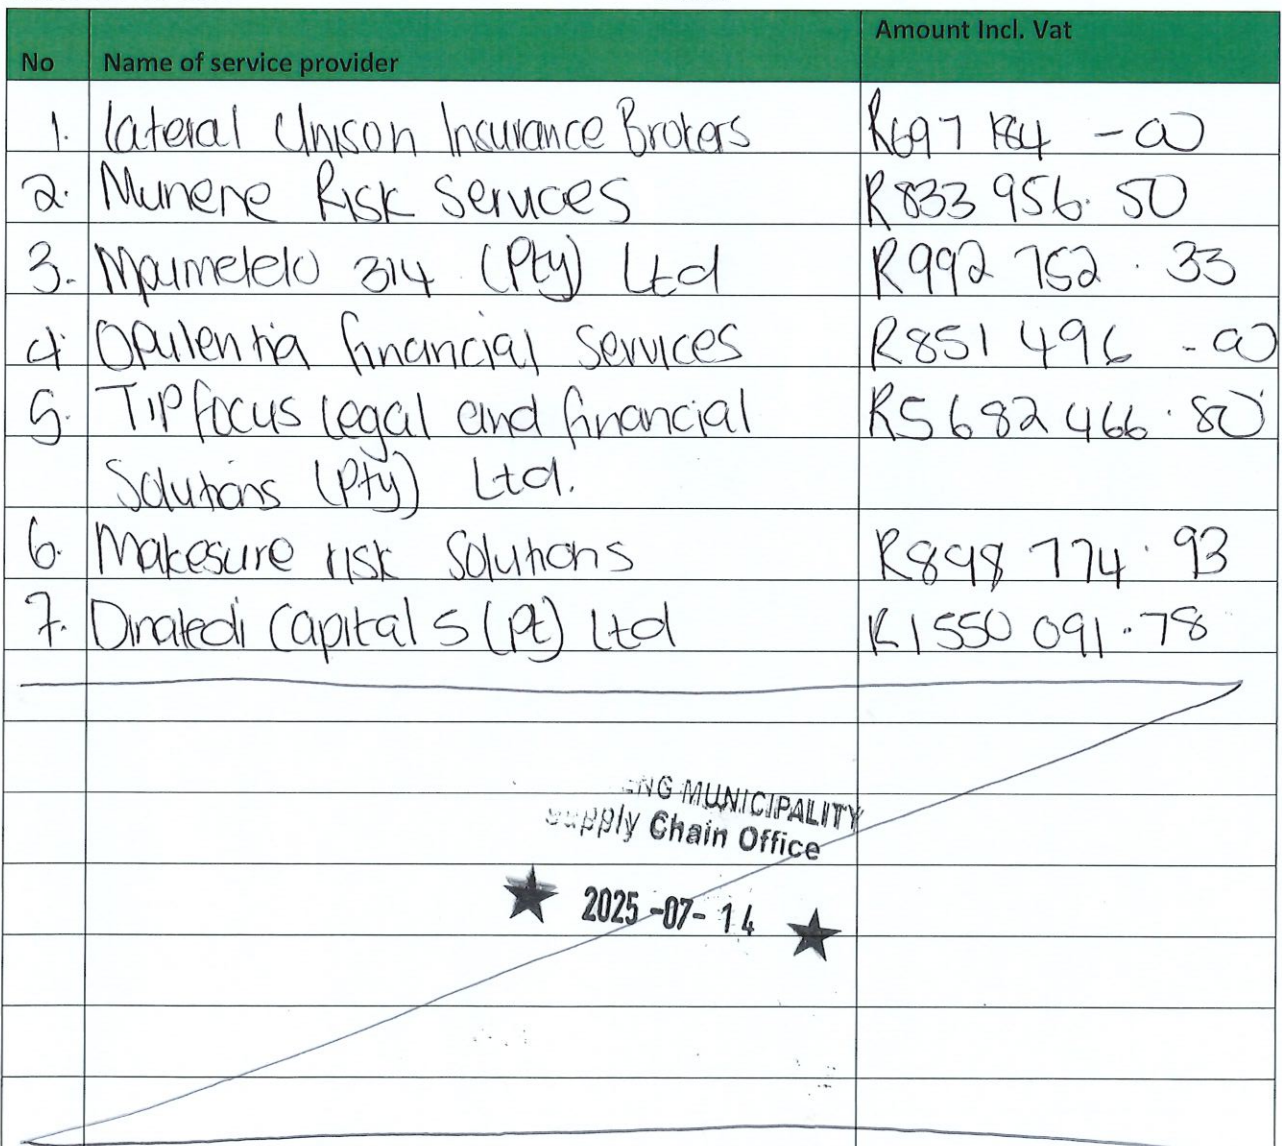 No Name of service provider Amount Incl. Vat
1. Lateral Unison Insurance Brokers R697 184 -00
2. Munene Risk Services R833 956.50
3. Mpumelelo 314 (Pty) Ltd R992 752.33
4. Opulentia financial Services R851 496 -00
5. TIPfocus legal and financial R5 682 466.80
Solutions (Pty) Ltd.
6. Makesure risk Solutions R898 774.93
7. Dinatedi Capital 5 (Pt) Ltd R1 550 091.78
MUNICIPALITY
Supply Chain Office
2025-07-14